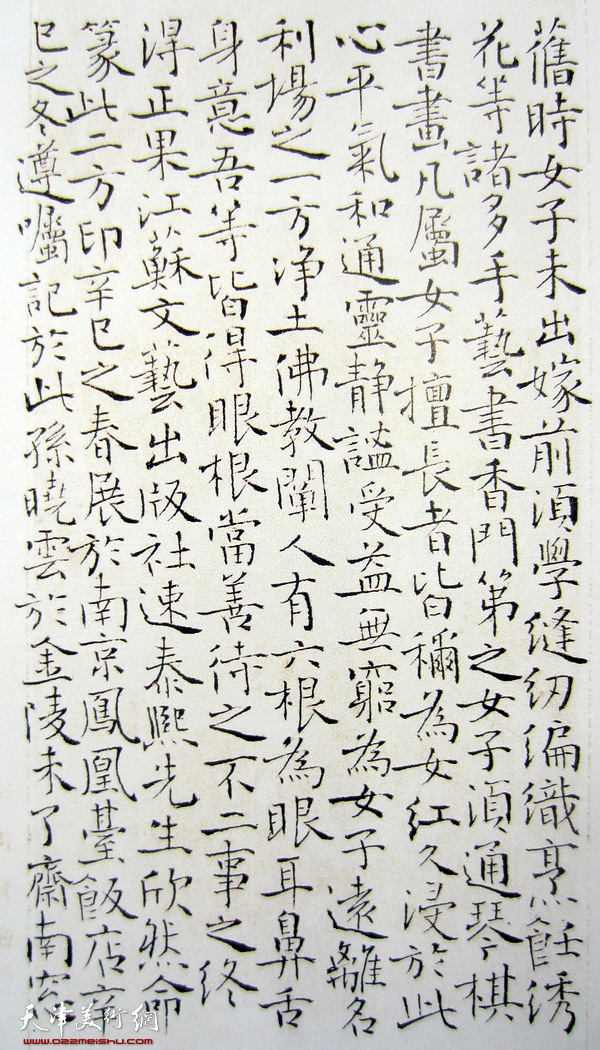 舊時女子未出嫁前須學縫纫編織烹飪綉
花等諸多手藝書香門第之女子須通琴棋
書畫凡屬女子擅長者皆稱為女紅久浸於此
心平氣和通靈静謐受益無窮為女子遠離名
利場之一方浄土佛教闡人有六根為眼耳鼻舌
身意吾等皆得眼根當善待之不二事之終
得正果江蘇文藝出版社速泰熙先生欣然命
篆此二方印辛巳之春展於南京鳳凰臺飯店辛
巳之冬遵囑記於此孫曉雲於金陵未了齋南窓
天津美術網
www.022meishu.com